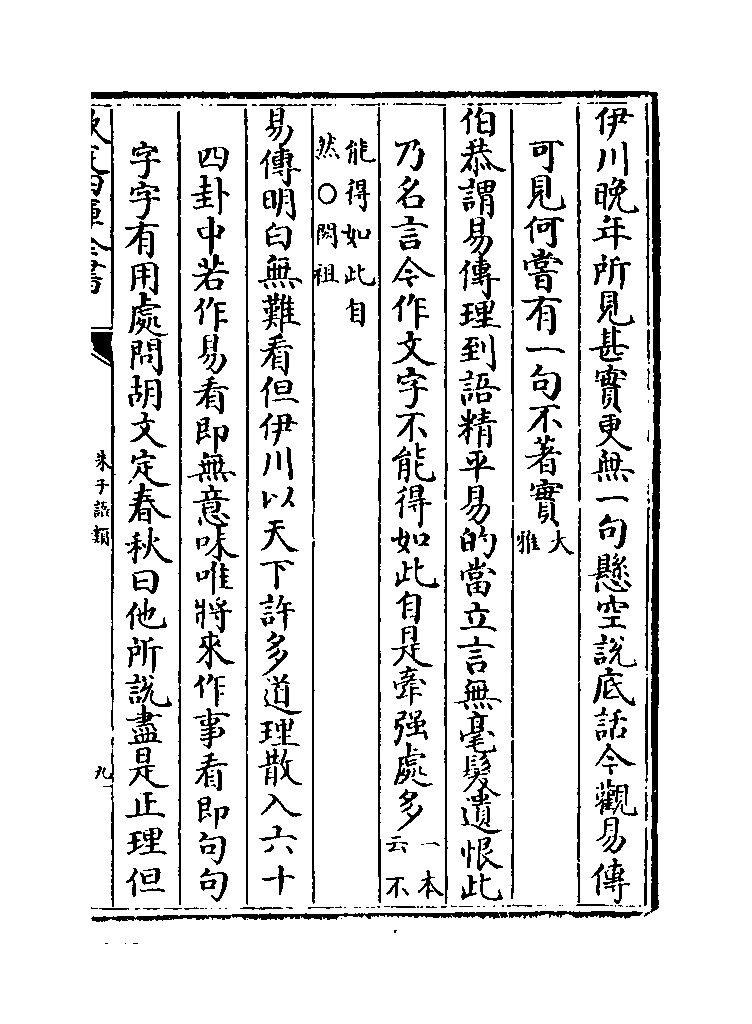 伊川晚年所見甚實更無一句懸空說底話今觀易傳
可見何嘗有一句不著實大雅
伯恭謂易傳理到語精平易的當立言無毫髮遺恨此
乃名言今作文字不能得如此自是牽强處多一本云不
能得如此自然○閎祖
易傳明白無難看但伊川以天下許多道理散入六十
四卦中若作易看即無意味唯將來作事看即句句
字字有用處問胡文定春秋曰他所說盡是正理但
欽定四庫全書
朱子語類
九